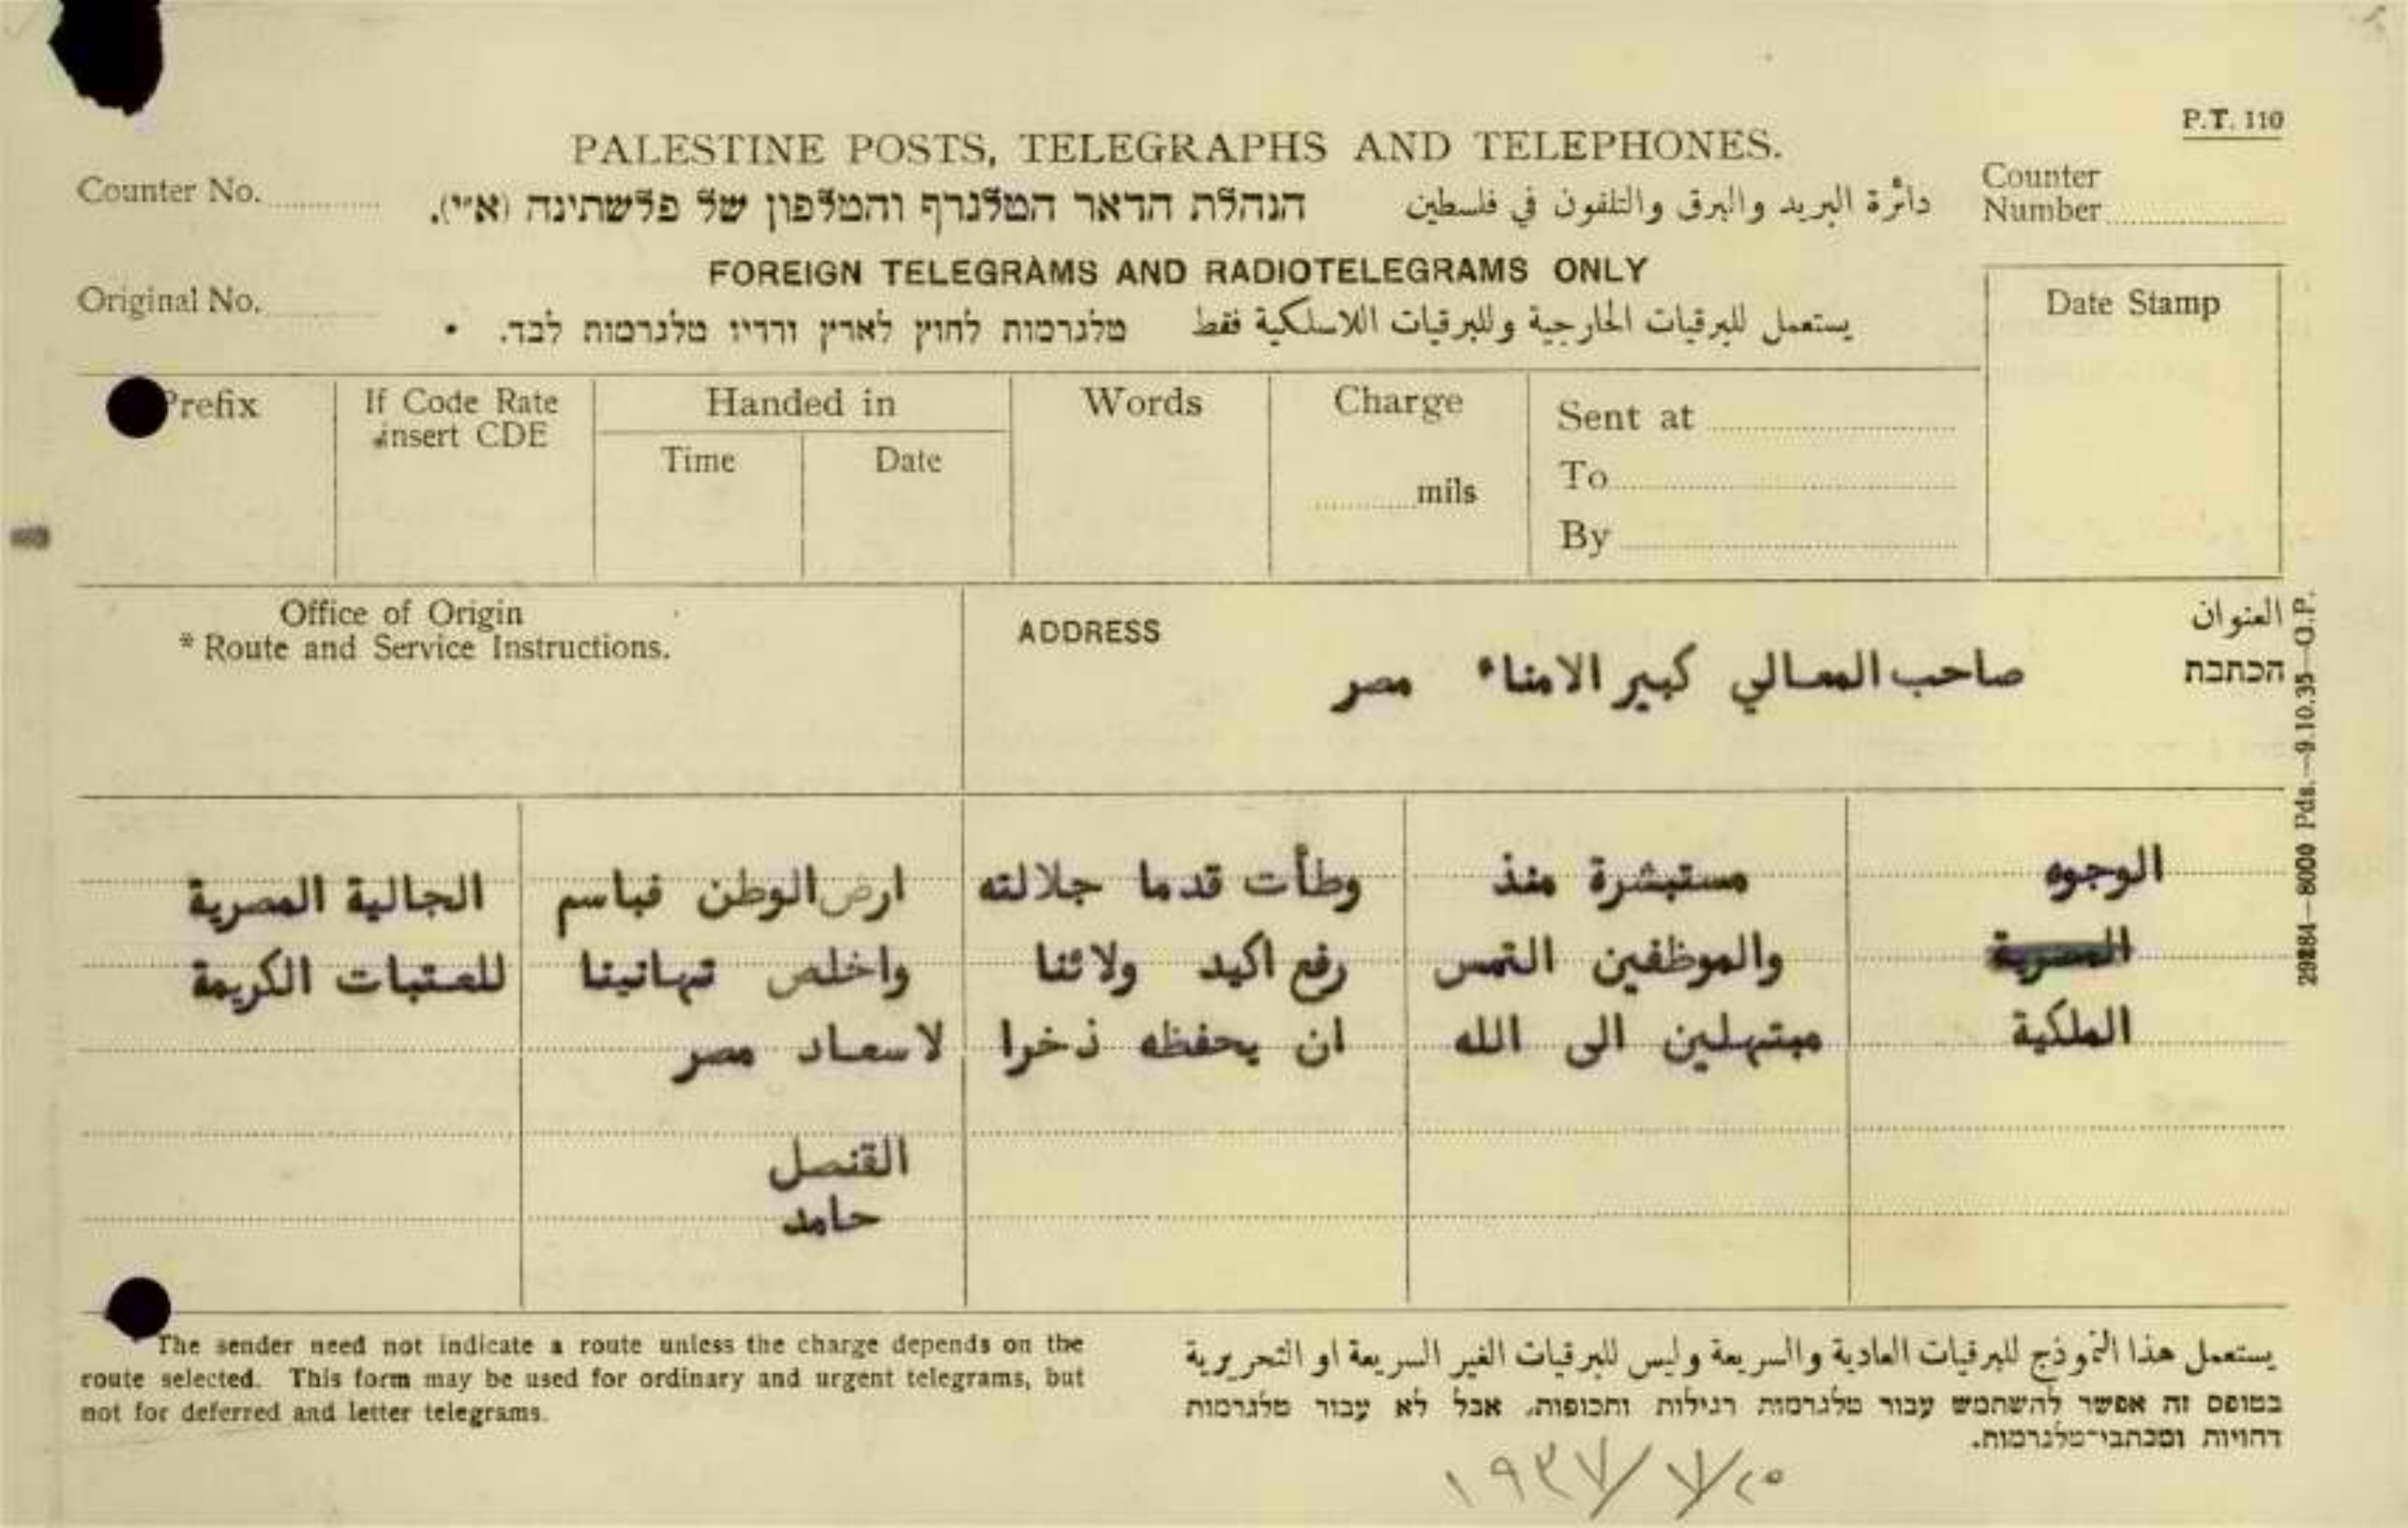 P.T. 110
PALESTINE POSTS, TELEGRAPHS AND TELEPHONES.
Counter No.
הנהלת הדאר הטלגרף והטלפון של פלשתינה (א״י).
دائرة البريد والبرق والتلفون في فلسطين
Counter
Number
FOREIGN TELEGRAMS AND RADIOTELEGRAMS ONLY
Original No.
טלגרמות לחוץ לארץ ורדיו טלגרמות לבד.
يستعمل للبرقيات الخارجية وللبرقيات اللاسلكية فقط
Date Stamp
Prefix
If Code Rate
insert CDE
Handed in
Time
Date
Words
Charge
mils
Sent at
To
By
Office of Origin
* Route and Service Instructions.
ADDRESS
العنوان
הכתבת
صاحب المعالي كبير الامناء مصر
الوجوه مستبشرة منذ وطأت قدما جلالته ارض الوطن فباسم الجالية المصرية
المصرية والموظفين التمس رفع اكيد ولائنا واخلص تهانينا للعتبات الكريمة
الملكية مبتهلين الى الله ان يحفظه ذخرا لاسعاد مصر
القنصل
حامد
29884—8000 Pds.—9.10.35—G.P.
The sender need not indicate a route unless the charge depends on the
route selected. This form may be used for ordinary and urgent telegrams, but
not for deferred and letter telegrams.
يستعمل هذا النموذج للبرقيات العادية والسريعة وليس للبرقيات الغير السريعة او التحريرية
בטופס זה אפשר להשתמש עבור טלגרמות רגילות ותכופות, אבל לא עבור טלגרמות
דחויות ומכתבי־טלגרמות.
١٩٣٧/٧/٢٥